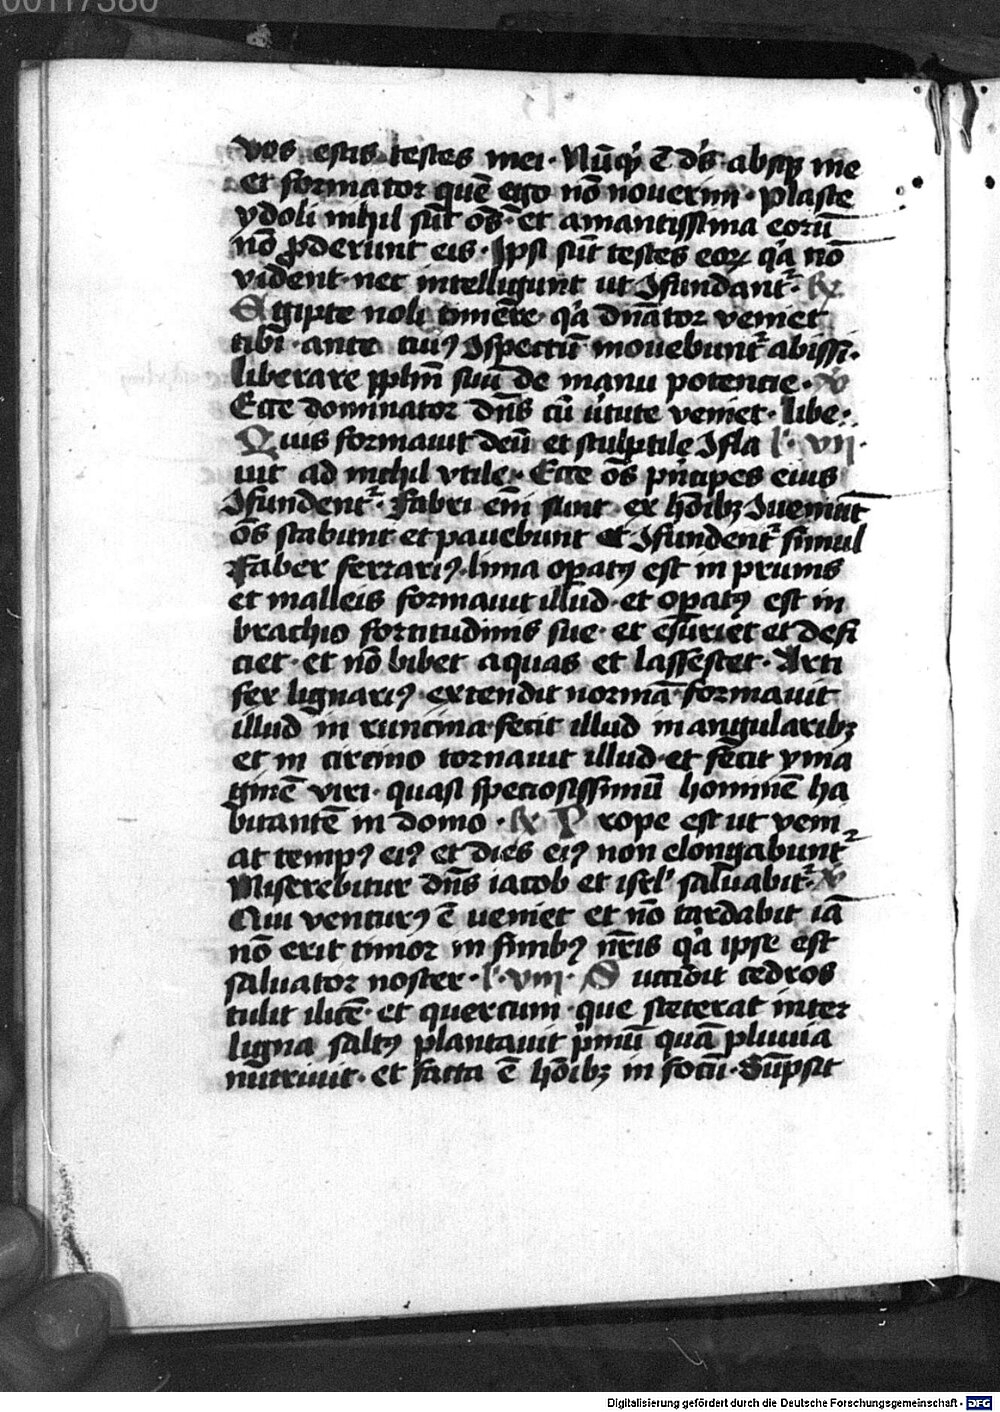 00117380
vos estis testes mei · Nūqͥd ē dn̄s absqꝫ me
et formator quē ego nō noverim · Plaste
ydoli nihil sūt om̄s · et amantissima eorū
nō ꝓderunt eis · Ipsi sūt testes eoꝝ qͥa nō
vident · nec intelligunt ut ↄfundant᷑ · ℟
Egipte noli timere · qͥa dn̄ator veniet
tibi · ante cuiꝰ ↄspectū movebunt᷑ abissi ·
liberare ppl̄m suū de manu potencie · ℣
Ecce dominator dn̄s cū v̓tute veniet · libe ·
Quis formavit deū et sculptile ↄfla l · vij ·
vit ad nichil vtile · Ecce om̄s pͥncipes eius
ↄfundent᷑ · Fabri em̄ sunt ex hōibꝫ ↄveniūt
om̄s stabunt et pavebunt et ↄfundent᷑ simul
Faber ferrariꝰ · lima opatꝰ est in prunis
et malleis formavit illud · et opatꝰ est in
brachio fortitudinis sue · et esuriet et defi
ciet · et nō bibet aquas et lassescet · Arti
fex lignariꝰ extendit normā · formavit
illud in runcina · fecit illud in angularibꝫ
et in circino tornavit illud · et fecit yma
ginē viri · quasi speciosissimū hominē ha
bitantē in domo · ℟ Prope est ut veni
at tempꝰ eiꝰ et dies eiꝰ non elongabunt᷑
Miserebitur dn̄s iacob et isrl̓ salvabit᷑ · ℣
Qui venturꝰ ē veniet et nō tardabit iā
nō erit timor in finibꝰ nr̄is qͥa ipse est
salvator noster · l · viij · Succidit cedros
tulit ilicē · et quercum · que steterat inter
ligna saltꝰ plantavit pͥmū quā pluvia
nutrivit · et facta ē hōibꝫ in focū · Sūpsit
Digitalisierung gefördert durch die Deutsche Forschungsgemeinschaft - DFG